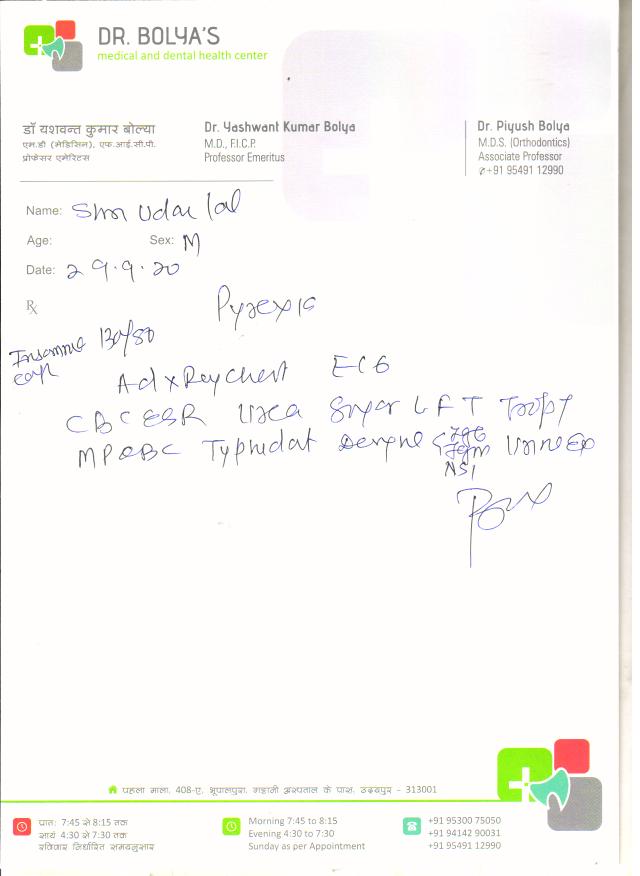 DR. BOLYA'S
medical and dental health center
डॉ यशवन्त कुमार बोल्या
एम.डी (मेडिसिन), एफ.आई.सी.पी.
प्रोफेसर एमेरिटस
Dr. Yashwant Kumar Bolya
M.D., F.I.C.P.
Professor Emeritus
Dr. Piyush Bolya
M.D.S. (Orthodontics)
Associate Professor
+91 95491 12990
Name: Shri Udai lal
Age: Sex: M
Date: 29.9.20
Rx
Pyrexia
130/80
Ad x Ray chest ECG
CBC ESR Urea Sugar LFT Trop T
MP QBC Typhidot Dengue IgG IgM NS1 Urine Ex
पहला माला, 408-ए, भूपालपुरा, शहानी अस्पताल के पास, उदयपुर - 313001
प्रातः 7:45 से 8:15 तक
सायं 4:30 से 7:30 तक
रविवार निर्धारित समयनुसार
Morning 7:45 to 8:15
Evening 4:30 to 7:30
Sunday as per Appointment
+91 95300 75050
+91 94142 90031
+91 95491 12990